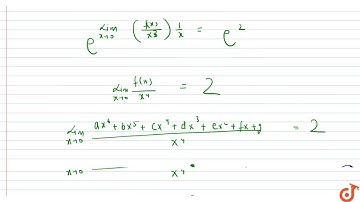 e^{Lim x→0 (f(x)/x^3) 1/x} = e^2
Lim x→0 f(x)/x^4 = 2
Lim x→0 (ax^6 + bx^5 + cx^4 + dx^3 + ex^2 + fx + g)/x^4 = 2
x→0 x^4